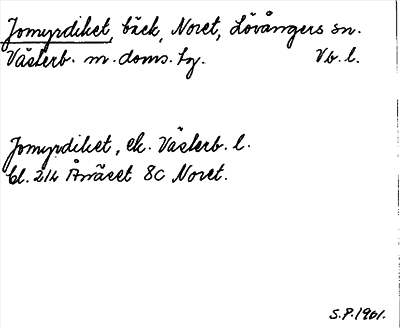 Jomyrdiket, bäck, Noret, Lövångers sn.
Västerb. m. doms. sg. Vb. l.
Jomyrdiket, ek. Västerb. l.
bl. 214 Ånäset 8C Noret.
S.P. 1961.